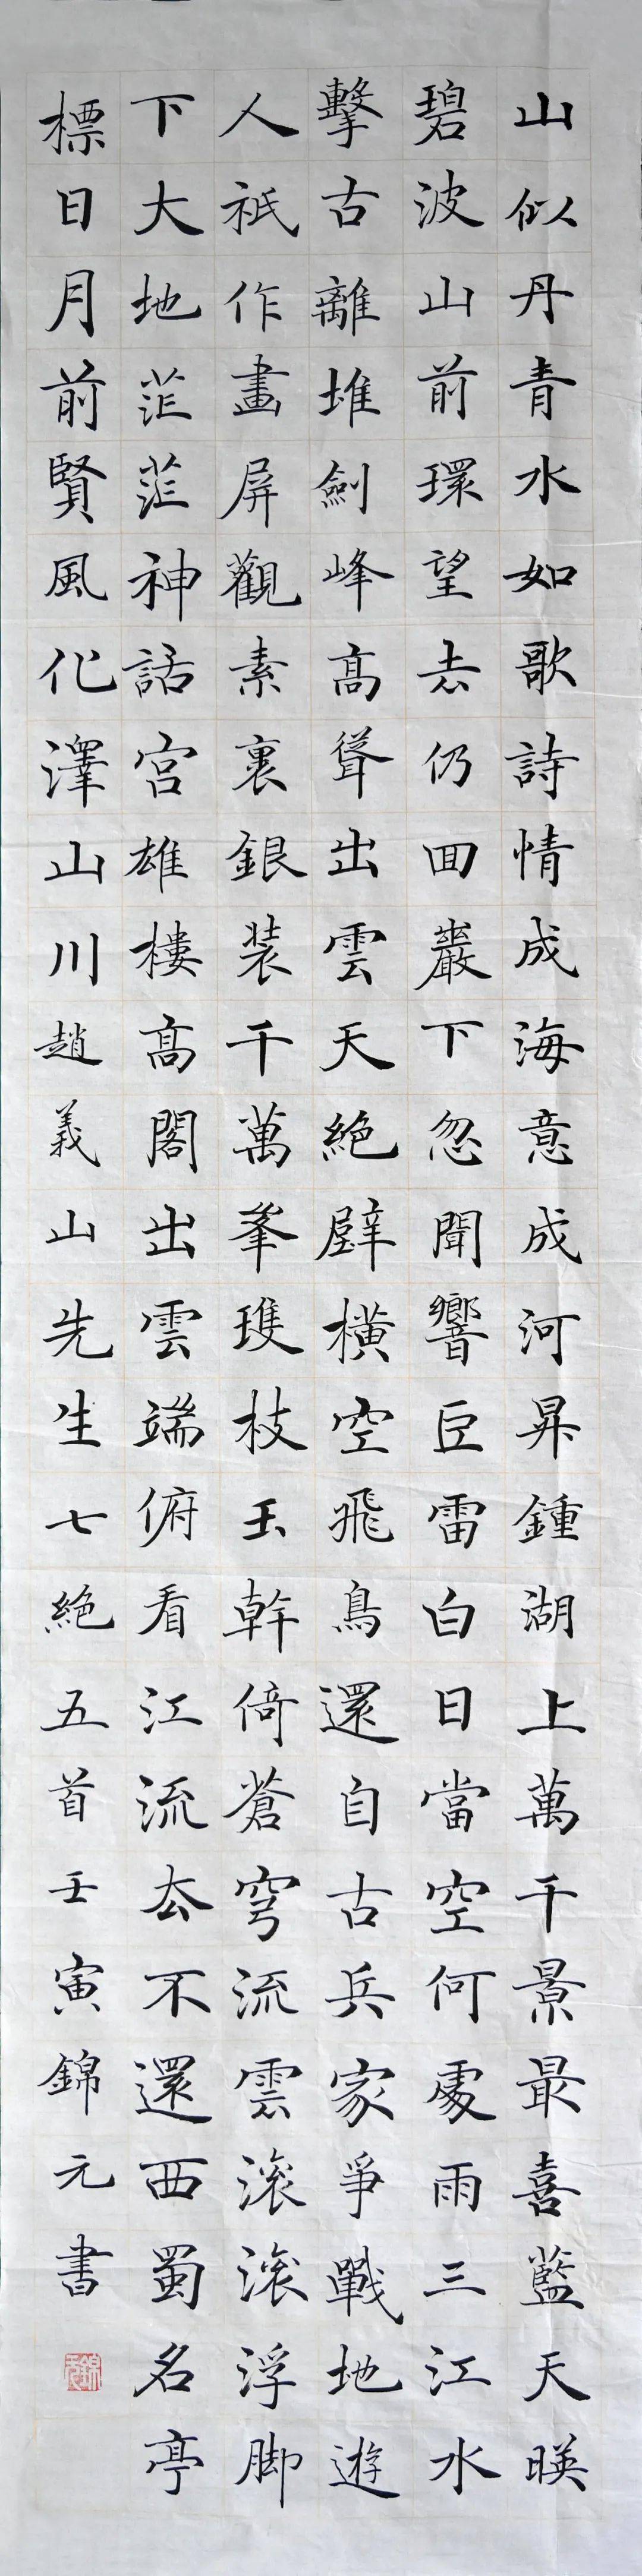 山似丹青水如歌詩情成海意成河昇鍾湖上萬千景最喜藍天暎
碧波山前環望去仍回巖下忽聞響巨雷白日當空何處雨三江水
擊古離堆劍峰高聳出雲天絕壁橫空飛鳥還自古兵家爭戰地遊
人祇作畫屏觀素裹銀裝千萬峯瓊枝玉幹倚蒼穹流雲滾滾浮腳
下大地茫茫神話宮雄樓高閣出雲端俯看江流去不還西蜀名亭
標日月前賢風化澤山川趙義山先生七絕五首壬寅錦元書
錦元